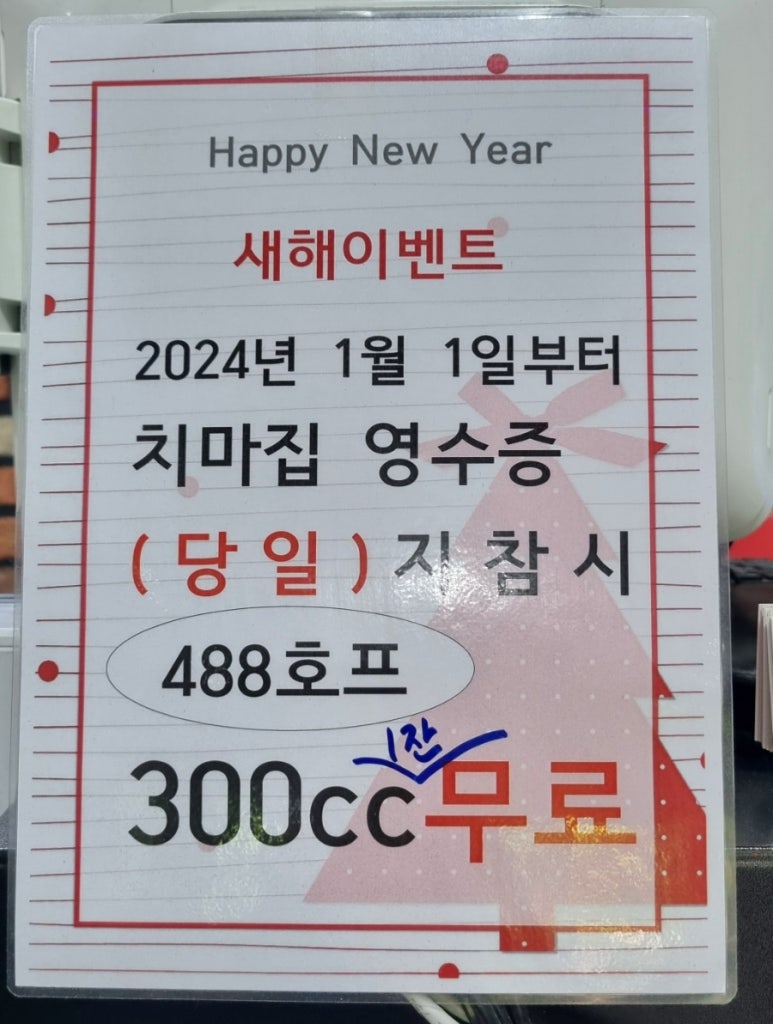 Happy New Year
새해이벤트
2024년 1월 1일부터
치마집 영수증
(당일)지참시
488호프
1잔
300cc무료